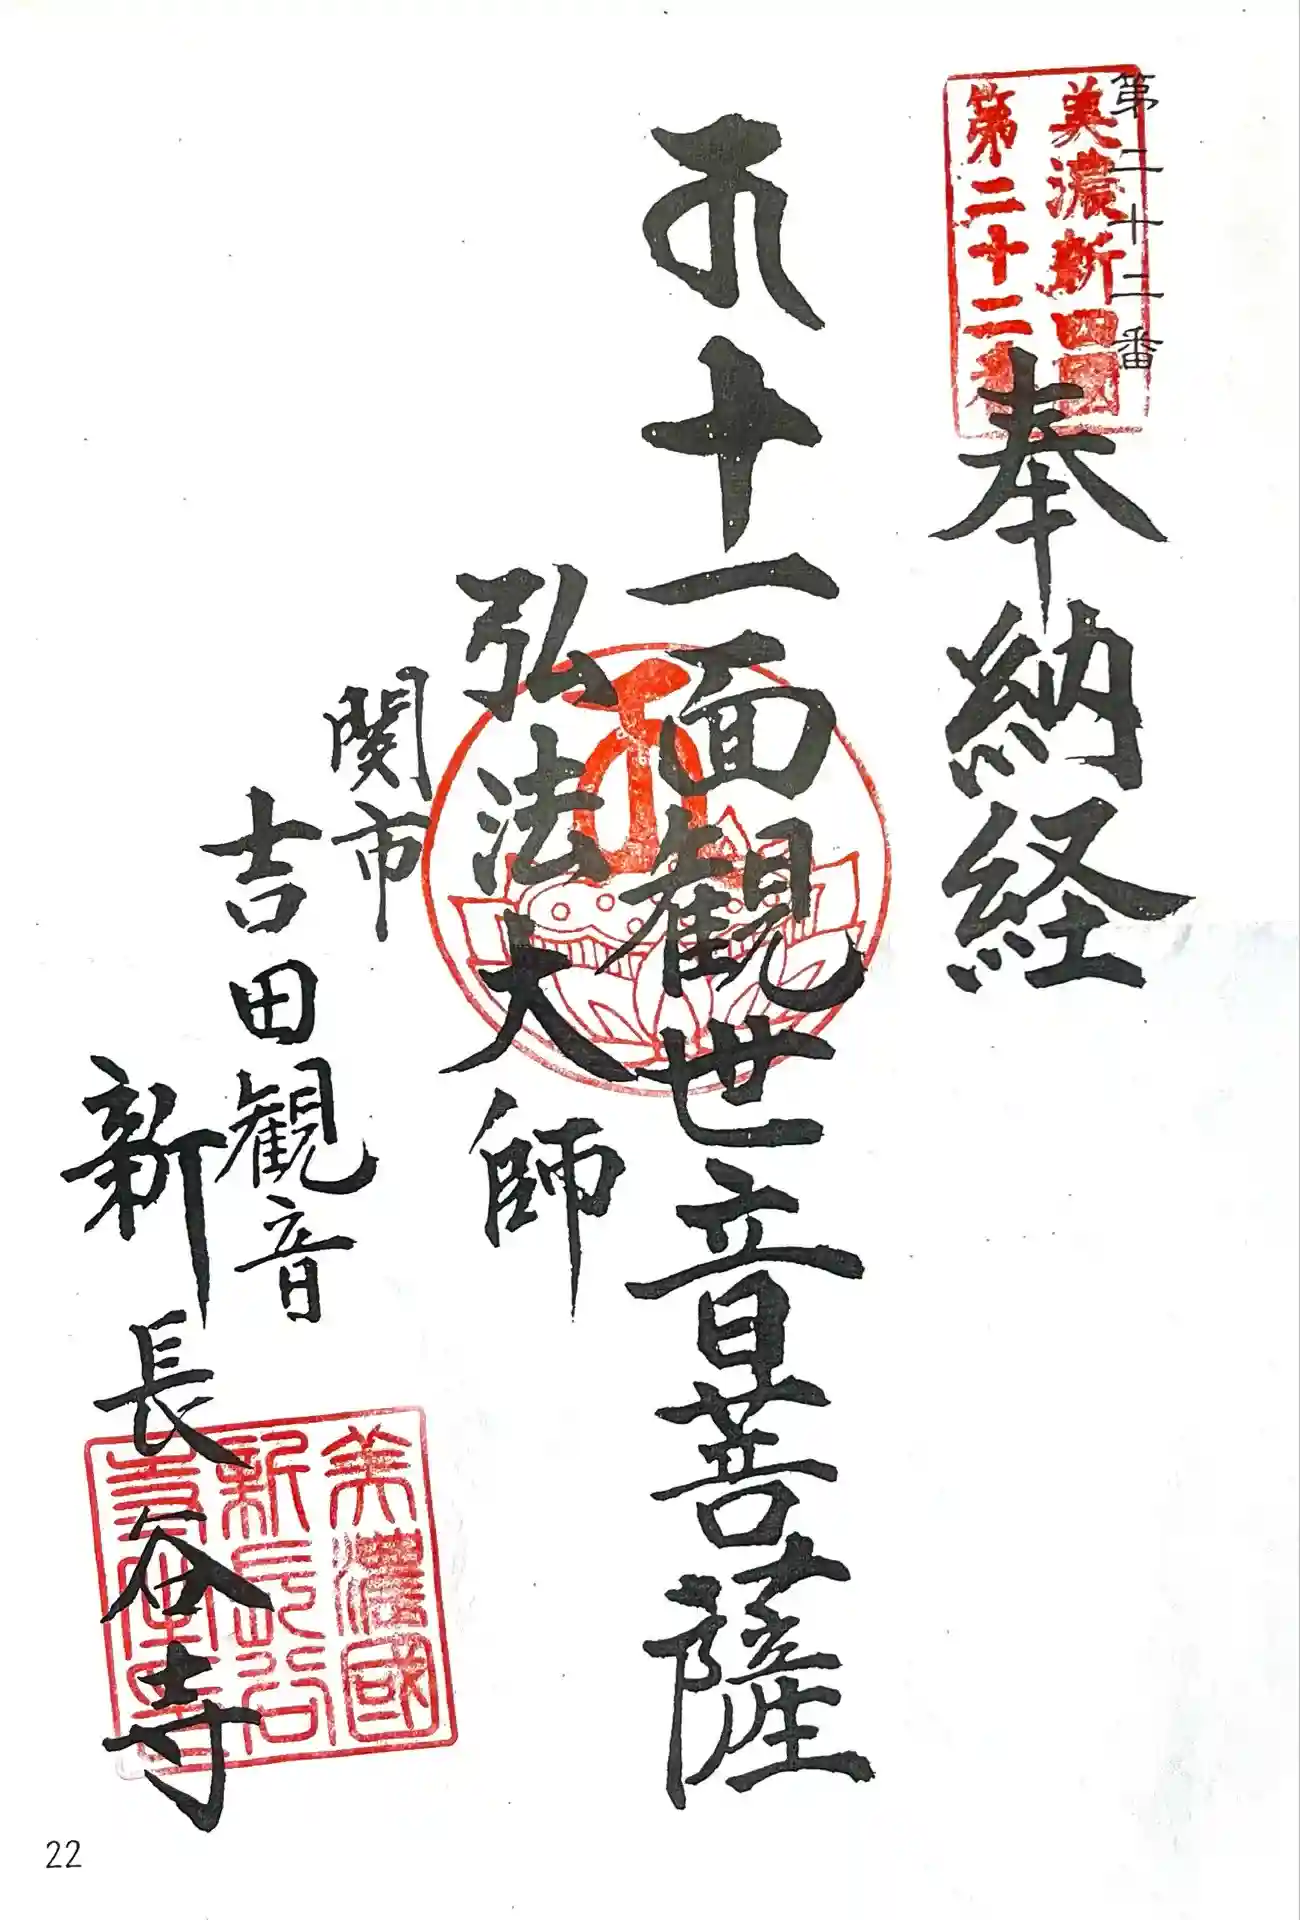 第二十二番
美濃新四国
第二十二番
奉納経
十一面観世音菩薩
弘法大師
関市
吉田観音
新長谷寺
美濃國
新長谷
22